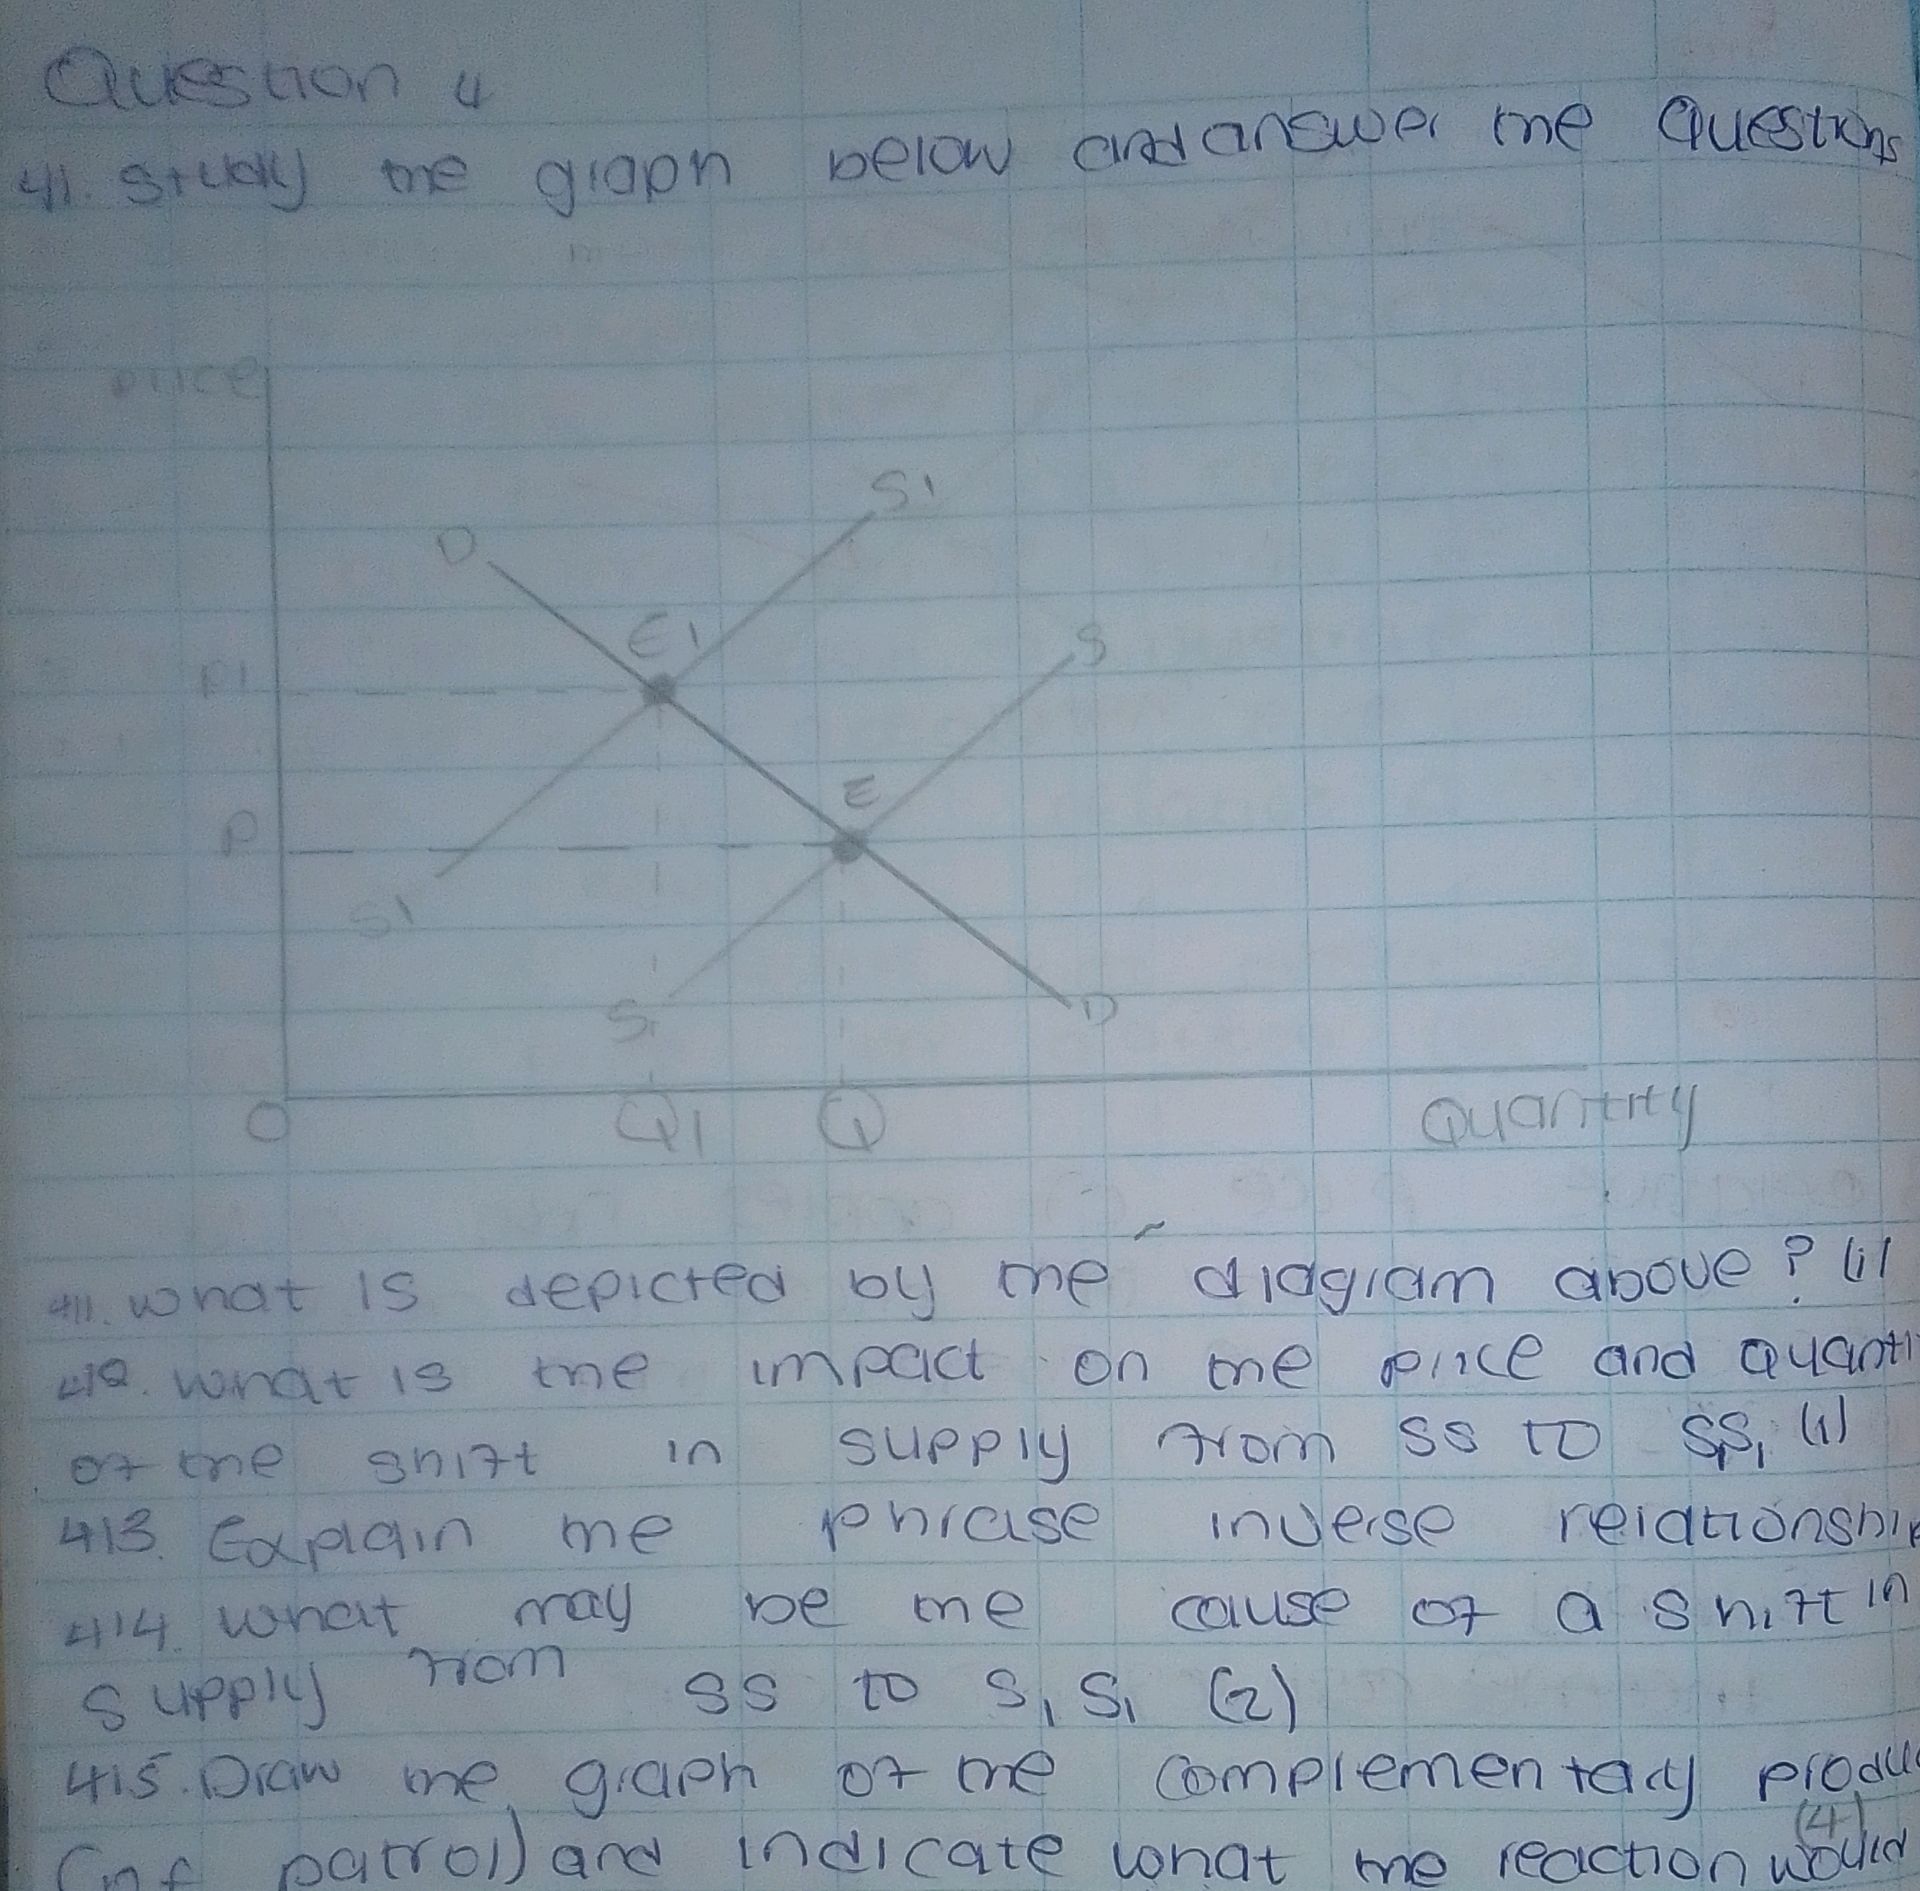 Question 4
41. Study the graph below and answer the Questions
price
S1
D
E1
S
P1
E
P
S1
S
D
O
Q1
Q
Quantity
411. What is depicted by the diagram above? (1)
412. What is the impact on the price and quanti
of the shift in supply from SS to S1S1 (1)
413. Explain the phrase inverse relationship
414. What may be the cause of a shift in
supply from SS to S1S1 (2)
415. Draw the graph of the complementary produc
(4)
patrol) and indicate what the reaction would